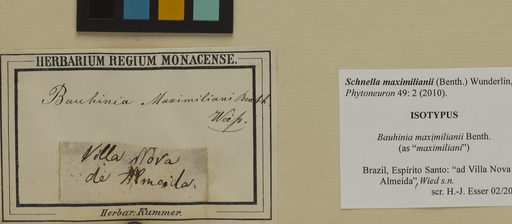 HERBARIUM REGIUM MONACENSE.
Bauhinia Maximiliani Benth.
Villa Nova
de Almeida.
Herbar. Kummer.
Schnella maximilianii (Benth.) Wunderlin,
Phytoneuron 49: 2 (2010).
ISOTYPUS
Bauhinia maximilianii Benth.
(as “maximiliani”)
Brazil, Espírito Santo: “ad Villa Nova
Almeida”, Wied s.n.
scr. H.-J. Esser 02/20